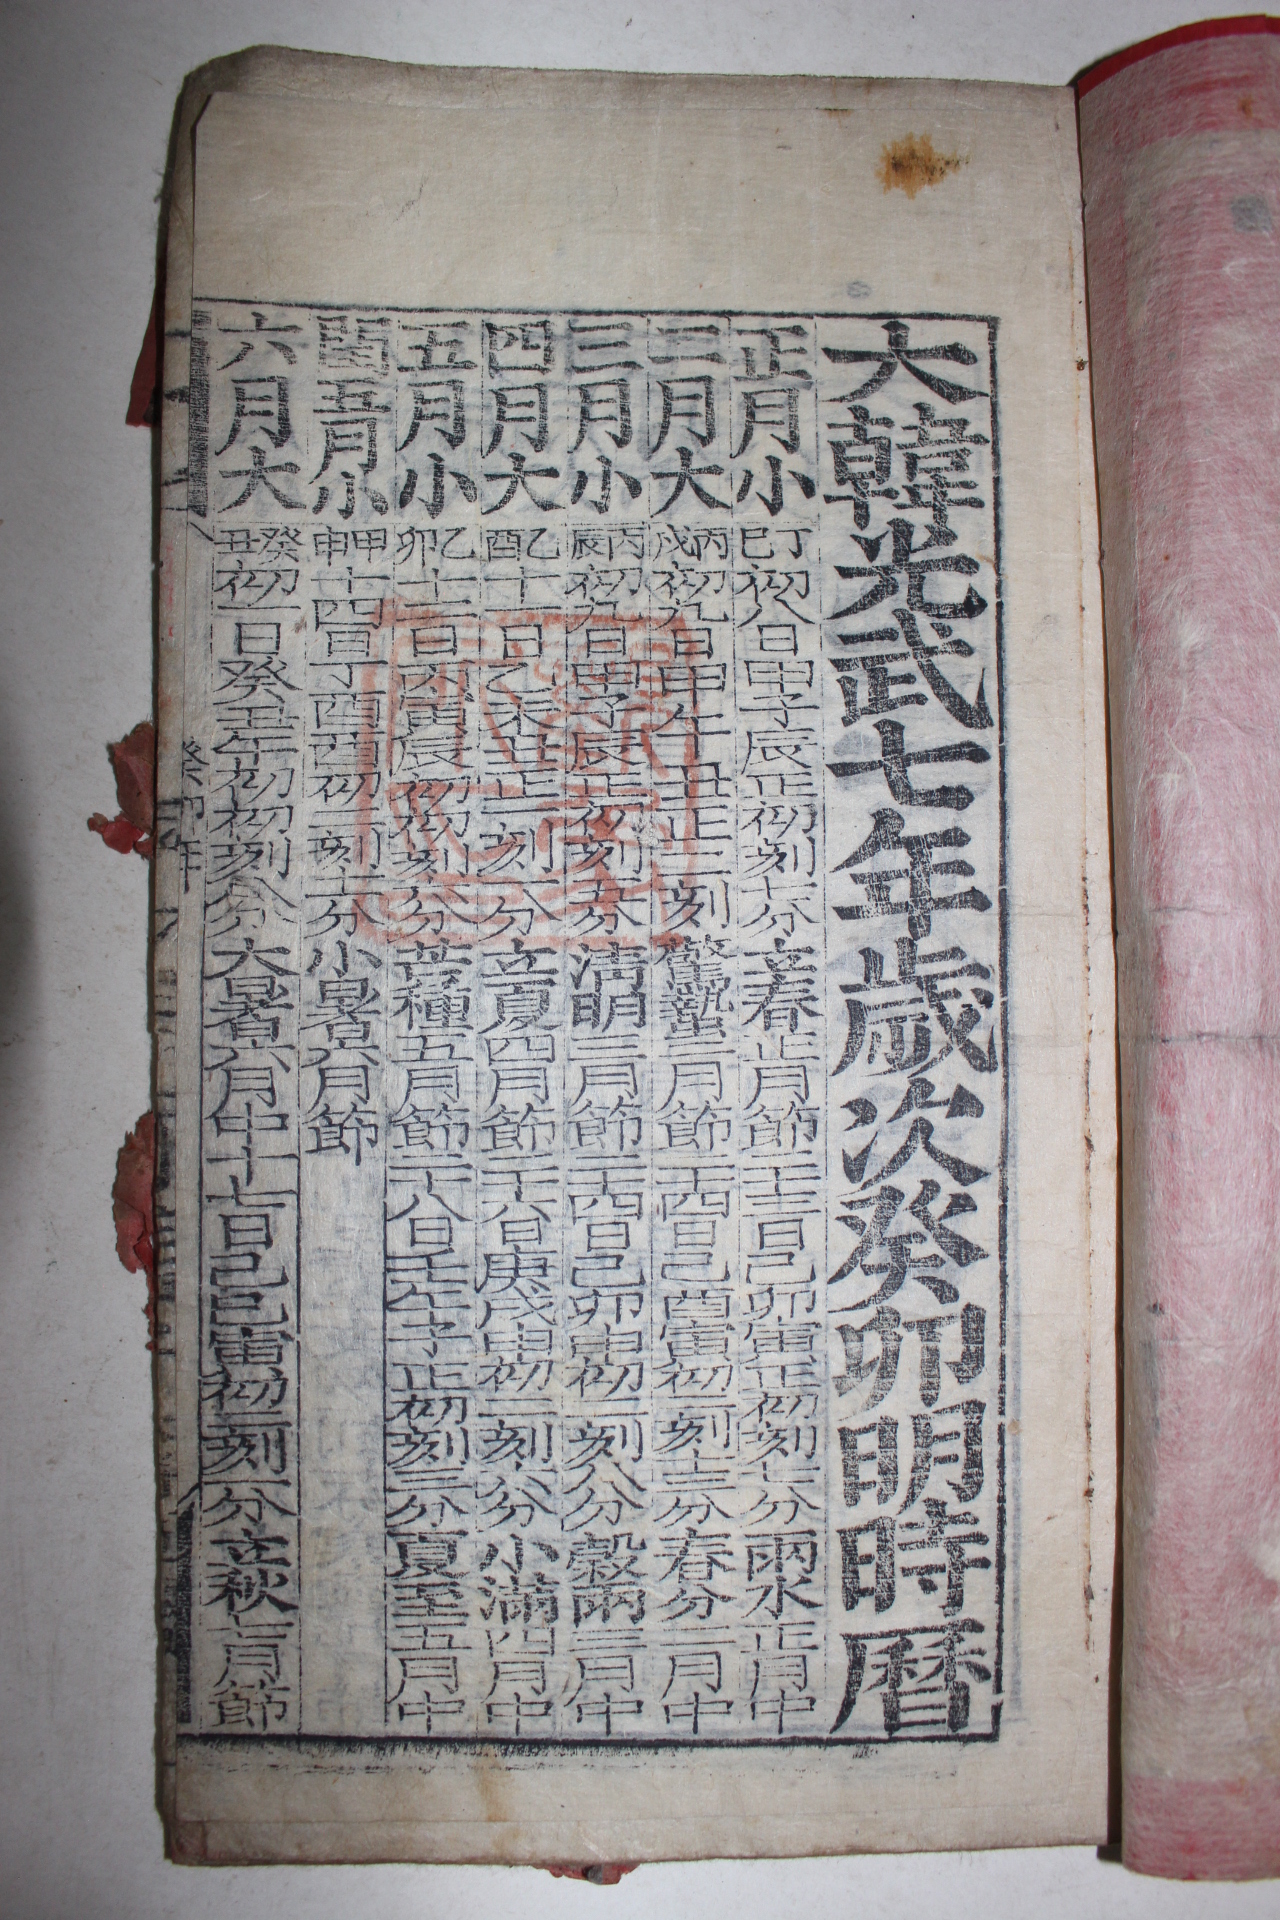 大韓光武七年歲次癸卯明時曆
正月小 丁巳初八日甲子辰正初刻七分立春正月節二十三日己卯寅正初刻七分雨水正月中
二月大 丙戌初九日甲午丑正三刻驚蟄二月節二十四日己酉寅初二刻十三分春分二月中
三月小 丙辰初九日甲子辰正初刻五分清明三月節二十四日己卯申初二刻八分穀雨三月中
四月大 乙酉十一日乙未丑正二刻八分立夏四月節二十六日庚戌申初二刻六分小滿四月中
五月小 乙卯十二日丙寅辰初初刻八分芒種五月節二十八日壬午子正初刻三分夏至五月中
閏五月小 甲申十四日丁酉酉初三刻十一分小暑六月節
六月大 癸丑初一日癸丑午初初刻八分大暑六月中十七日己巳寅初二刻一分立秋七月節
癸卯年